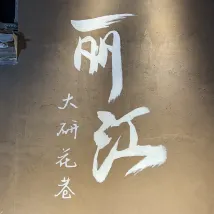 丽江
大研花巷